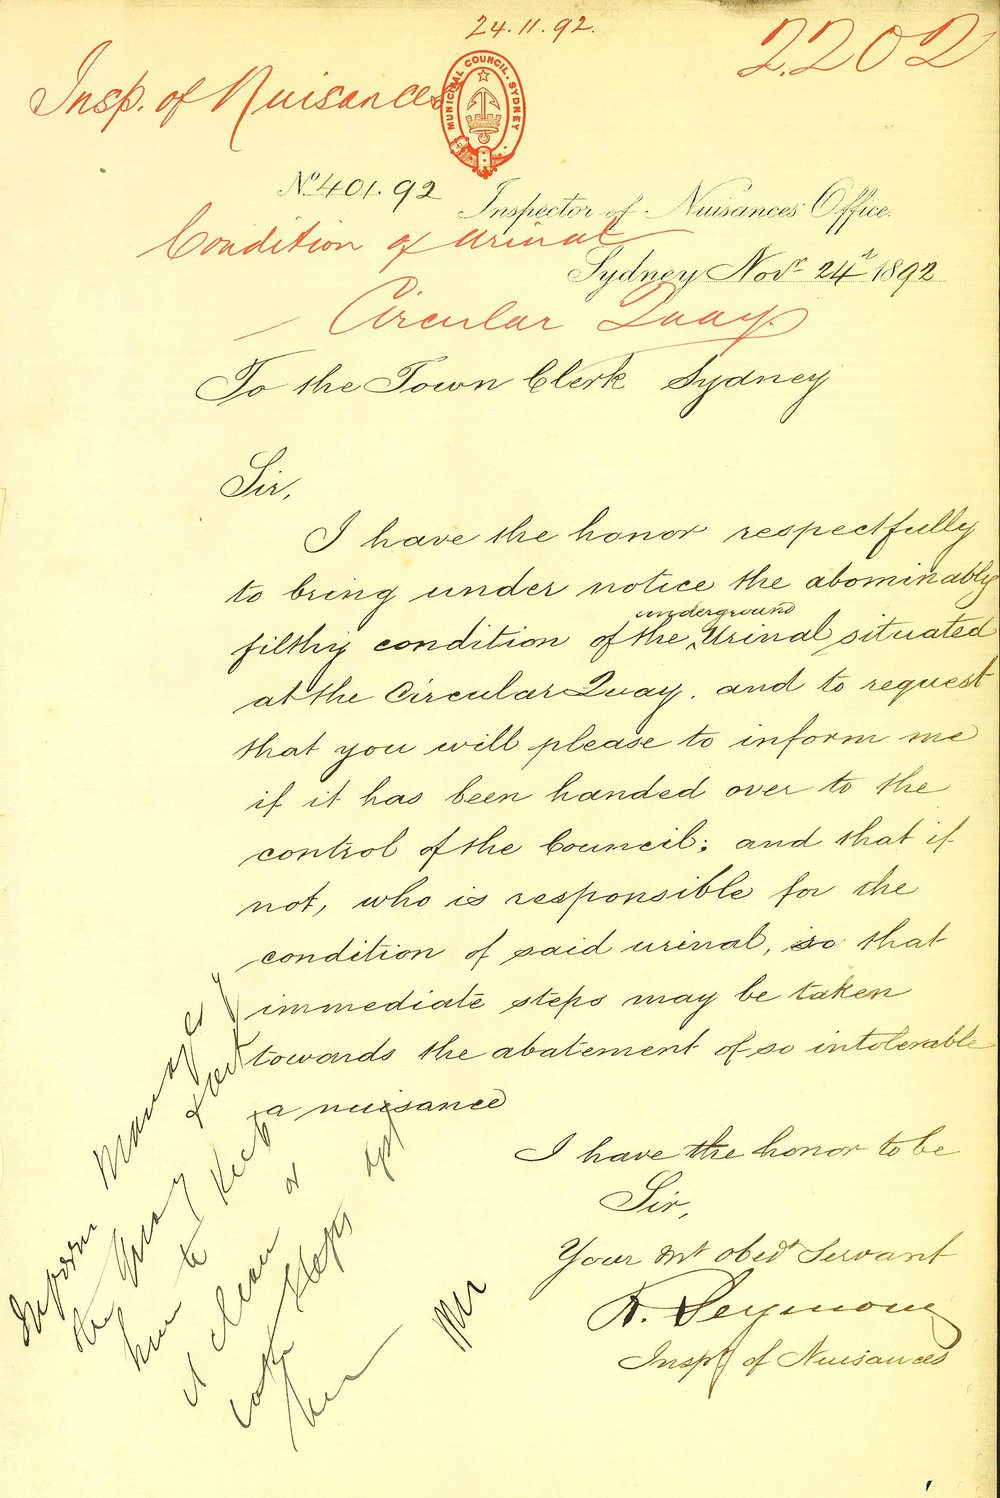 24.11.92.
2202
Insp. of Nuisances
MUNICIPAL COUNCIL. SYDNEY
No. 401.92
Inspector of Nuisances Office.
Condition of Urinal
Sydney Novr. 24th 1892
Circular Quay.
To the Town Clerk Sydney
Sir,
I have the honor respectfully
to bring under notice the abominably
underground
filthy condition of the ‸ Urinal situated
at the Circular Quay. and to request
that you will please to inform me
if it has been handed over to the
control of the Council: and that if
not, who is responsible for the
condition of said urinal, so that
immediate steps may be taken
towards the abatement of so intolerable
a nuisance
I have the honor to be
Sir,
Your Mt obedt Servant
R. Seymour
Inspr of Nuisances
Inform Manager of
the Quay & ask
him to keep
it clean or
take steps agst
him